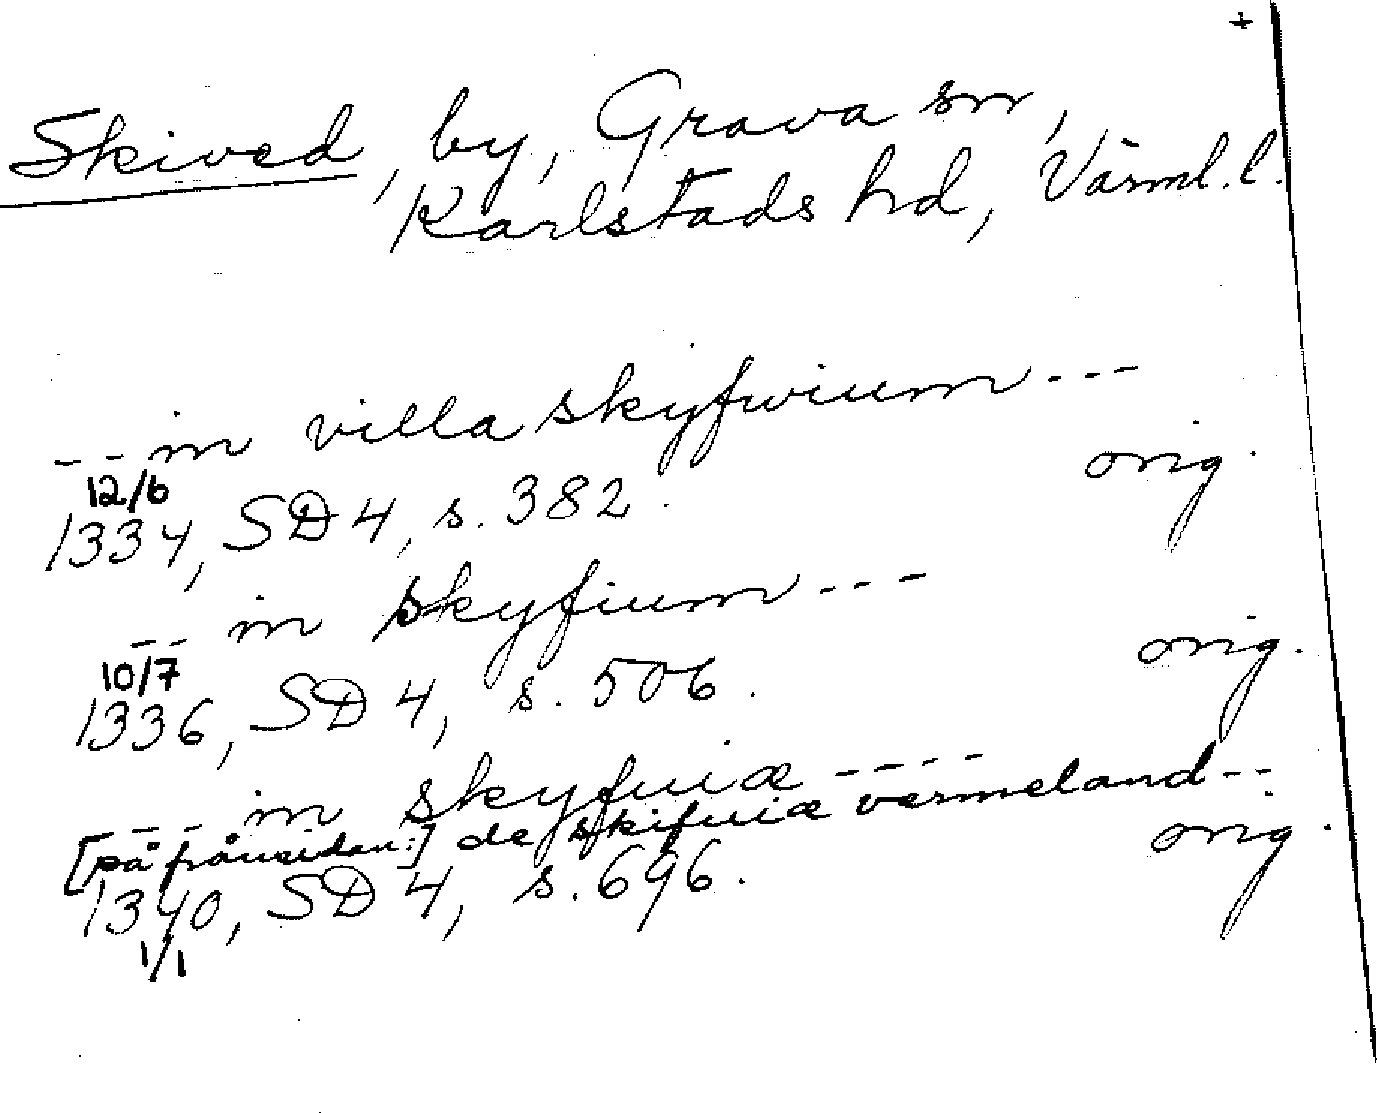 +
Skived, by, Grava sn,
Karlstads hd, Värml. l.
-- in villa skyfwium ---
12/6 orig.
1334, SD 4, s. 382.
-- in skyfium ---
10/7 orig.
1336, SD 4, s. 506.
--- in skyfuiæ ----
[på frånsidan:] de skifuiæ værmeland --
1340, SD 4, s. 696. orig.
1/1